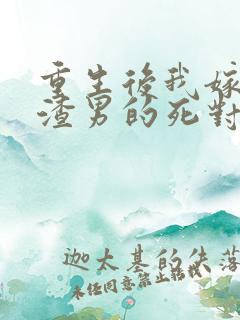 重生後我嫁
渣男的死對
迦太基的失落
未經同意禁止轉載